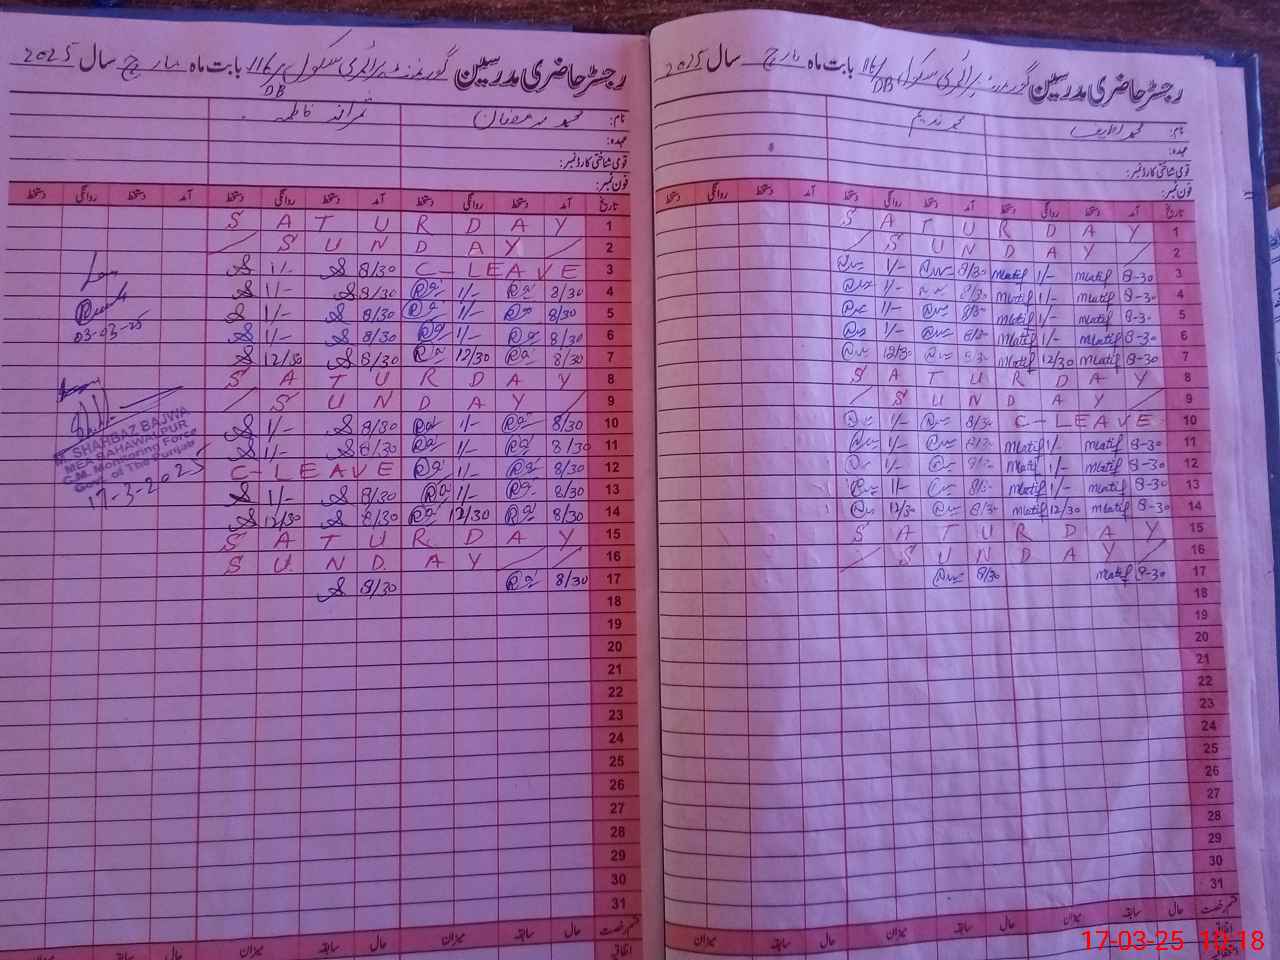 رجسٹر حاضری مدرسین گورنمنٹ پرائمری سکول 116/DB بابت ماہ مارچ سال 2025
نام: محمد لطیف محمد ندیم
عہدہ:
قومی شناختی کارڈ نمبر:
فون نمبر:
تاریخ آمد دستخط روانگی دستخط آمد دستخط روانگی دستخط آمد دستخط روانگی دستخط
S A T U R D A Y 1
S U N D A Y 2
1/- 8/30 mlatif 1/- mlatif 8-30 3
1/- 8/30 mlatif 1/- mlatif 8-30 4
1/- 8/30 mlatif 1/- mlatif 8-30 5
1/- 8/30 mlatif 1/- mlatif 8-30 6
12/30 8/30 mlatif 12/30 mlatif 8-30 7
S A T U R D A Y 8
S U N D A Y 9
1/- 8/30 C-LEAVE 10
1/- 8/30 mlatif 1/- mlatif 8-30 11
1/- 8/30 mlatif 1/- mlatif 8-30 12
1/- 8/30 mlatif 1/- mlatif 8-30 13
12/30 8/30 mlatif 12/30 mlatif 8-30 14
S A T U R D A Y 15
S U N D A Y 16
8/30 mlatif 8-30 17
18
19
20
21
22
23
24
25
26
27
28
29
30
31
قسم رخصت حال سابقہ میزان حال سابقہ میزان حال سابقہ میزان
اتفاقیہ
رجسٹر حاضری مدرسین گورنمنٹ پرائمری سکول 116/DB بابت ماہ مارچ سال 2025
نام: محمد رمضان ثمرانہ فاطمہ
عہدہ:
قومی شناختی کارڈ نمبر:
فون نمبر:
تاریخ آمد دستخط روانگی دستخط آمد دستخط روانگی دستخط آمد دستخط روانگی دستخط
S A T U R D A Y 1
S U N D A Y 2
1/- 8/30 C-LEAVE 3
1/- 8/30 1/- 8/30 4
1/- 8/30 1/- 8/30 5
03-03-25 1/- 8/30 1/- 8/30 6
12/30 8/30 12/30 8/30 7
S A T U R D A Y 8
S U N D A Y 9
1/- 8/30 1/- 8/30 10
1/- 8/30 1/- 8/30 11
C-LEAVE 1/- 8/30 12
1/- 8/30 1/- 8/30 13
12/30 8/30 12/30 8/30 14
S A T U R D A Y 15
S U N D A Y 16
8/30 8/30 17
18
19
20
21
22
23
24
25
26
27
28
29
30
31
SHAHBAZ BAJWA
MEA BAHAWALPUR
C.M. Monitoring Force
Govt. of The Punjab
17-3-2025
قسم رخصت حال سابقہ میزان حال سابقہ میزان حال سابقہ میزان
اتفاقیہ
17-03-25 10:18